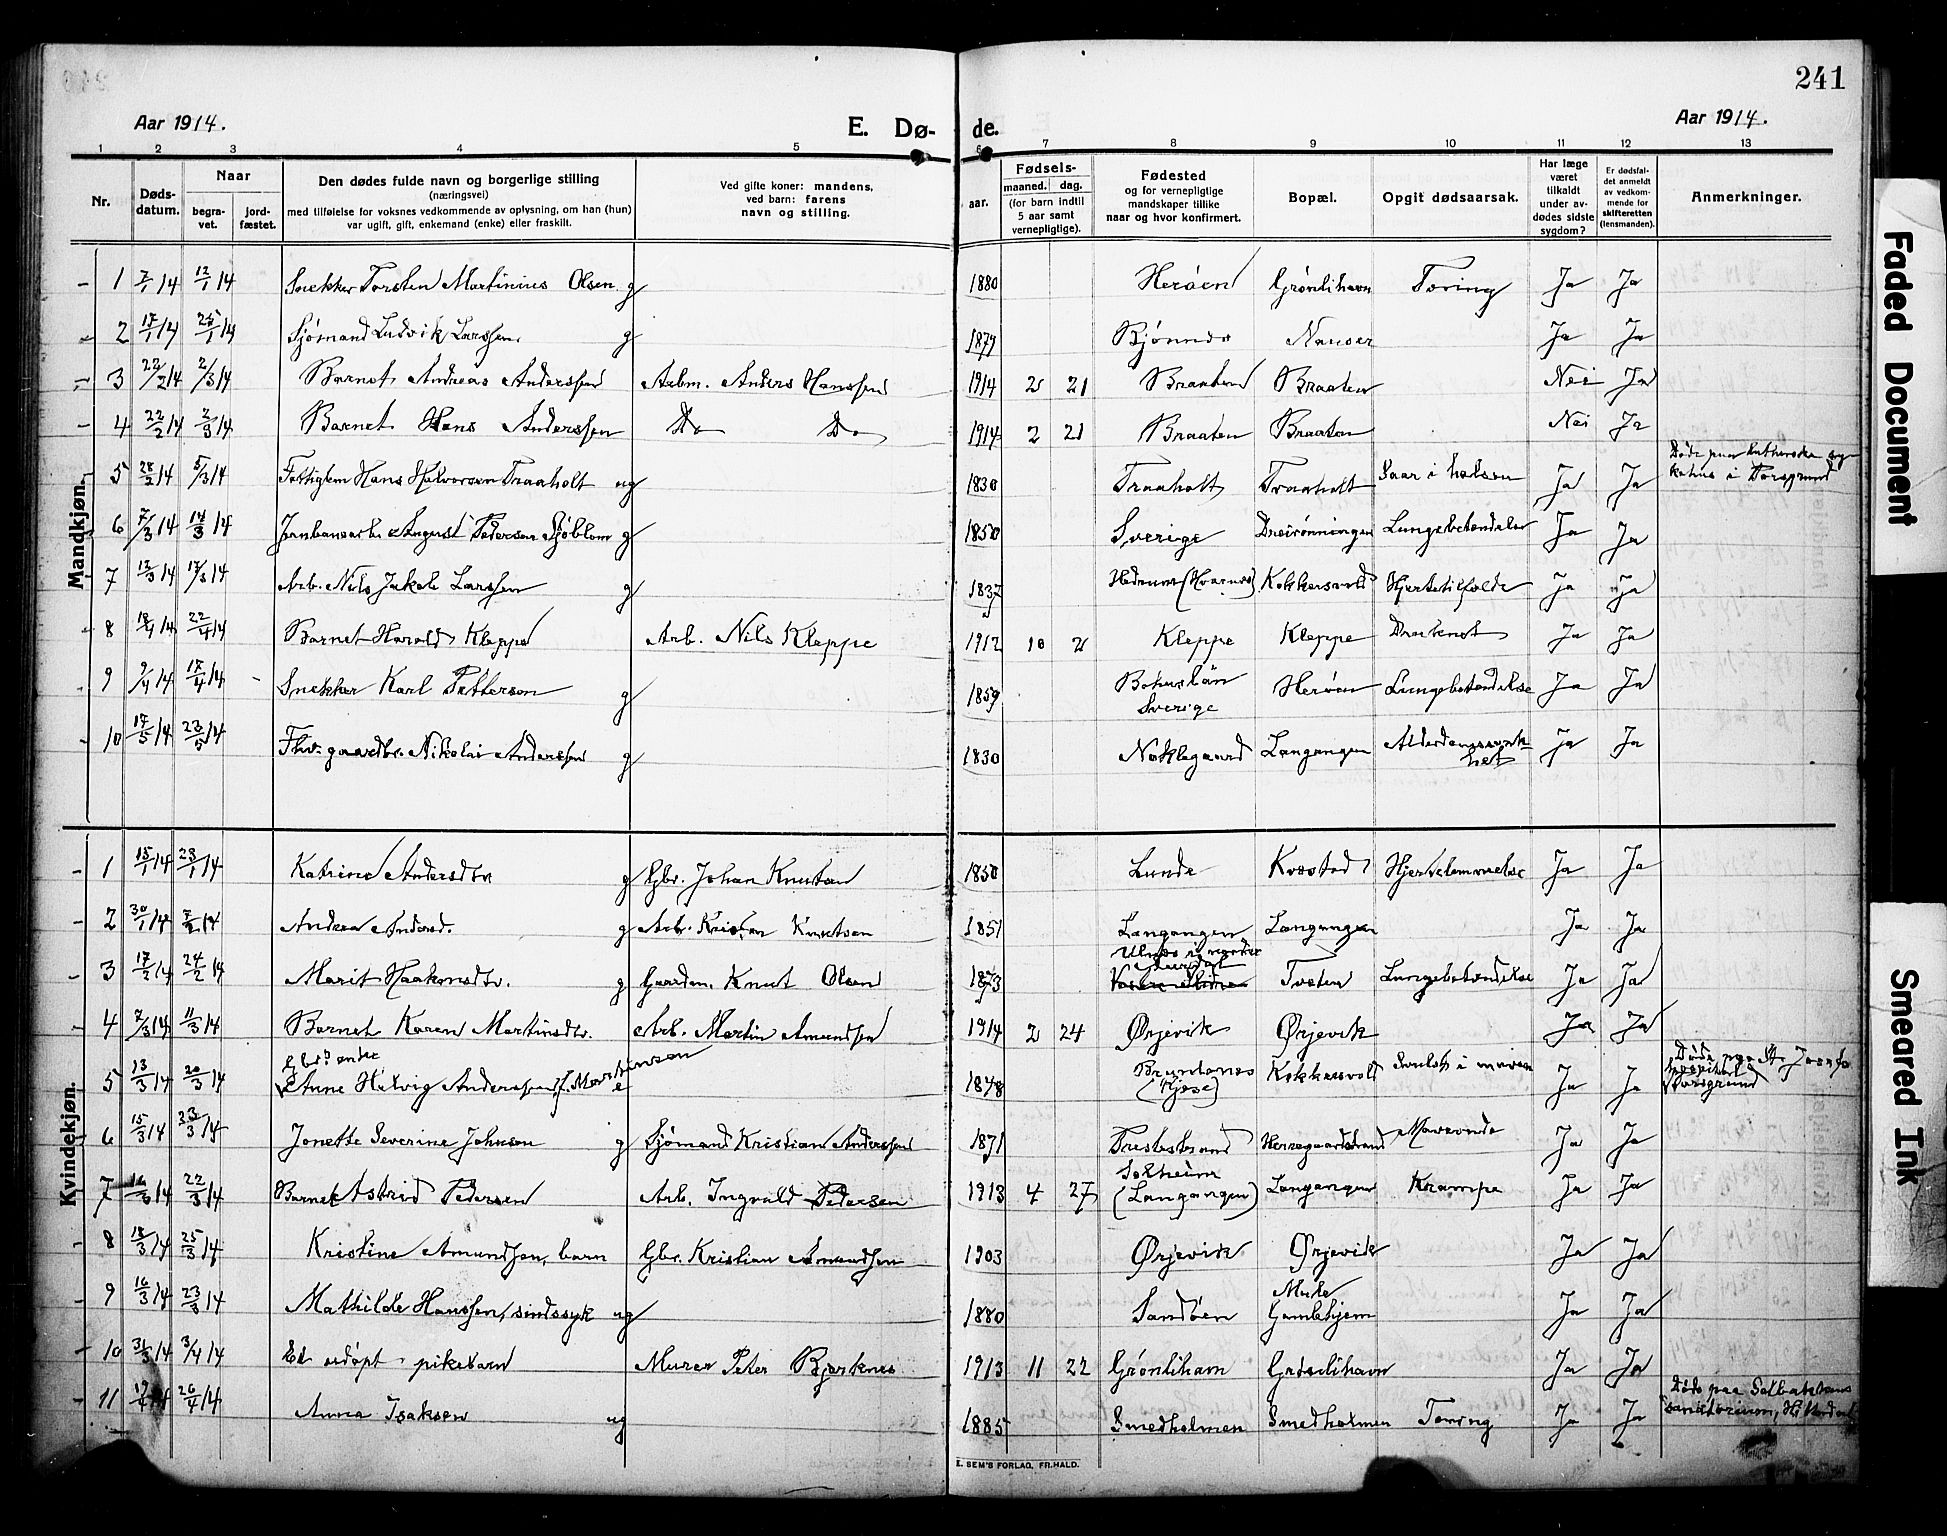 241
Aar 1914. E. Dø- de. Aar 1914.
1 2 3 4 5 6 7 8 9 10 11 12 13
Nr. Døds-datum. Naar begra-vet. jord-fæstet. Den dødes fulde navn og borgerlige stilling (næringsvei) med tilføielse for voksnes vedkommende av oplysning, om han (hun) var ugift, gift, enkemand (enke) eller fraskilt. Ved gifte koner: mandens, ved barn: farens navn og stilling. aar. Fødsels- maaned. dag. (for barn indtil 5 aar samt vernepligtige). Fødested og for vernepligtige mandskaper tillike naar og hvor konfirmert. Bopæl. Opgit dødsaarsak. Har læge været tilkaldt under av-dødes sidste sygdom? Er dødsfal-det anmeldt av vedkom-mende for skifteretten (lensmanden). Anmerkninger.
Mandkjøn.
1 7/1 14 12/1 14 Snekker Torsten Martinius Olsen g 1880 Herøen Grønlihavn Tæring Ja Ja
2 25/1 14 Sjømand Ludvik Larssen g 1879 Bjønnes Ja Ja
3 22/2 14 2/3 14 Barnet Andreas Anderssen Arbm. Anders Hanssen 1914 2 21 Braaten Braaten Nei Ja
4 22/2 14 2/3 14 Barnet Hans Anderssen Do Do 1914 2 21 Braaten Braaten Nei Ja
5 28/2 14 5/3 14 Fattiglem Hans Halvorsen Traaholt ug 1830 Traaholt Traaholt Saar i halsen Ja Ja Døde paa Lutherske sy-kehus i Porsgrund
6 7/3 14 14/3 14 Jernbanearb. August Pedersen Sjøblom g 1850 Sverige Lungebetændelse Ja Ja
7 13/3 14 17/3 14 Arb. Nils Jakob Larssen g 1837 Kokkersvold Hjertetilfælde Ja Ja
8 18/4 14 22/4 14 Barnet Harald Kleppe Arb. Nils Kleppe 1912 10 2 Kleppe Kleppe Druknet Ja Ja
9 9/4 14 15/4 14 Snekker Karl Petterson g 1859 Bohuslän Sverige Herøen Lungebetændelse Ja Ja
10 17/5 14 23/5 14 Fhv. gaardbr. Nikolai Anderssen g 1830 Nøklegaard Langangen Alderdomssvak-het Ja Ja
Kvindekjøn.
1 15/1 14 23/1 14 Katrine Andersdtr. g Gbr. Johan Knutsen 1850 Lunde Kvestad Hjertelammelse Ja Ja
2 30/1 14 14 Andrea Andersd. g Arb. Kristen Knutsen 1851 Langangen Langangen Ja Ja
3 17/2 14 24/2 14 Marit Haakonsdtr. g Gaardm. Knut Olsen 1873 Tveten Lungebetændelse Ja Ja
4 7/3 14 11/3 14 Barnet Karen Martinsdtr. Arb. Martin Amundsen 1914 2 24 Ørjevik Ørjevik Ja Ja
5 13/3 14 20/3 14 Gbr. enke Anne Helvig Anderssen f. Mortensen e 1848 Bruntanes (Kjøse) Kokkersvold Svulst i maven Ja Ja Døde paa St. Josefs hospital Porsgrund
6 15/3 14 23/3 14 Jonette Severine Johnsen g Sjømand Kristian Anderssen 1871 Trostestrand Herregaardstrand Mavevonde Ja Ja
7 16/3 14 22/3 14 Barnet Astrid Pedersen Arb. Ingvald Pedersen 1913 4 27 Solheim (Langangen) Langangen Krampe Ja Ja
8 18/3 14 25/3 14 Kristine Amundsen, barn Gbr. Kristian Amundsen 1903 Ørjevik Ørjevik Ja Ja
9 16/3 14 23/3 14 Mathilde Hanssen, sindssyk ug 1880 Sandøen Mule Gamlehjem Ja Ja
10 31/3 14 3/4 14 Et udøpt pikebarn Murer Peter Bjerknes 1913 11 22 Grønlihavn Grønlihavn Ja Ja
11 19/4 14 26/4 14 Anna Isaksen ug 1885 Smedholmen Smedholmen Tæring Ja Ja Døde paa sanatorium,
E. SEM'S FORLAG, FR.HALD.
Faded Document
Smeared Ink